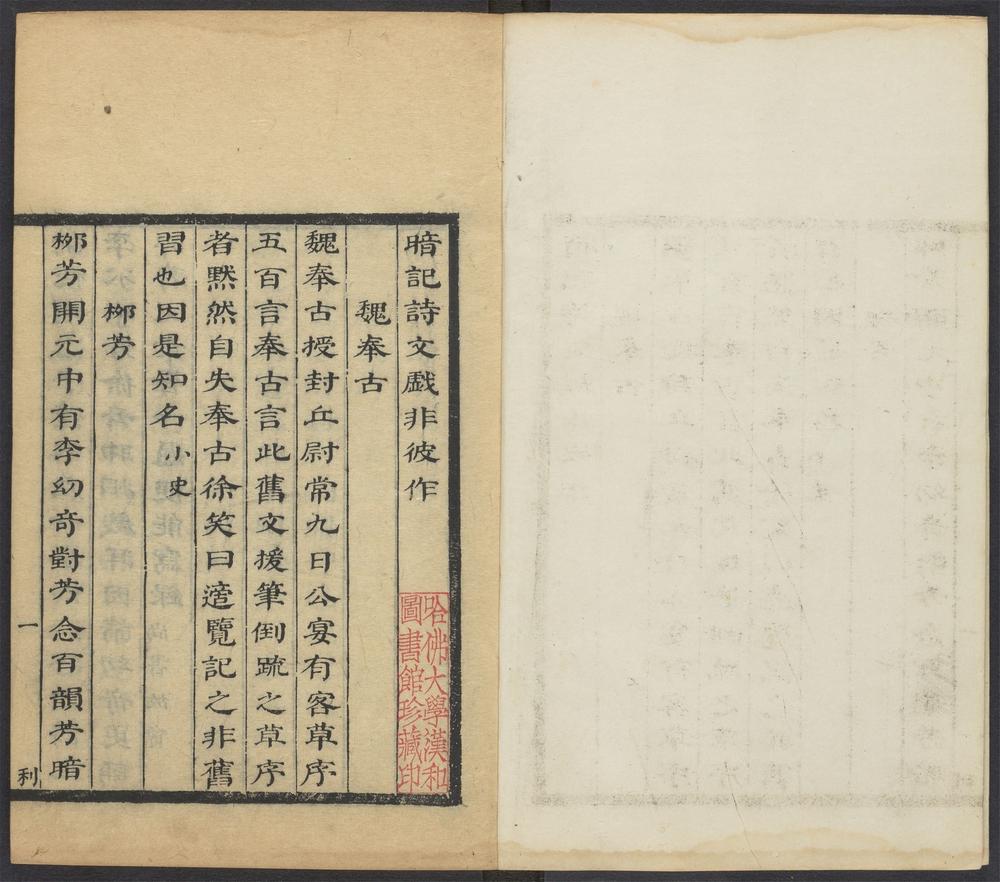 暗記詩文戲非彼作
魏奉古
魏奉古授封丘尉常九日公宴有客草序
五百言奉古言此舊文援筆倒䟽之草序
者默然自失奉古徐笑曰適覽記之非舊
習也因是知名小史
桺芳
桺芳開元中有李幼奇對芳念百韻芳暗
一
利
哈佛大學漢和
圖書館珍藏印